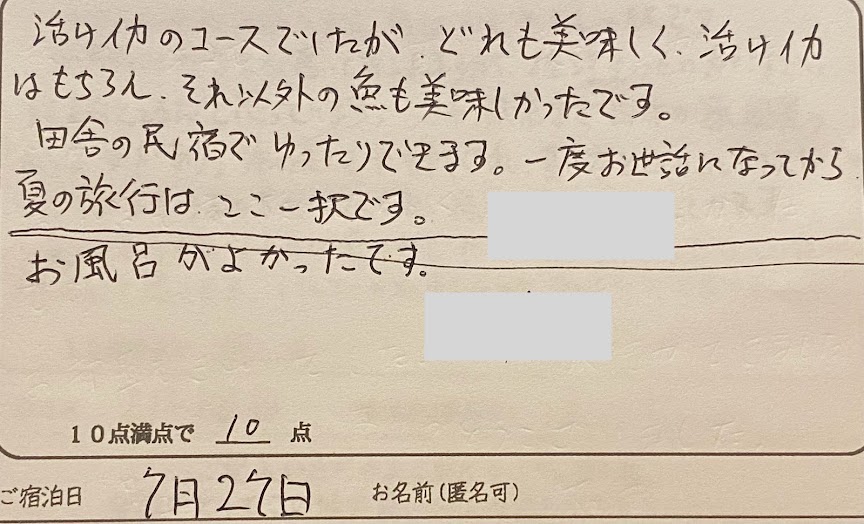 活けイカのコースでしたが、どれも美味しく、活けイカ
はもちろん、それ以外の魚も美味しかったです。
田舎の民宿でゆったりできます。一度お世話になってから、
夏の旅行は、ここ一択です。
お風呂がよかったです。
10点満点で 10 点
ご宿泊日 7月27日 お名前(匿名可)